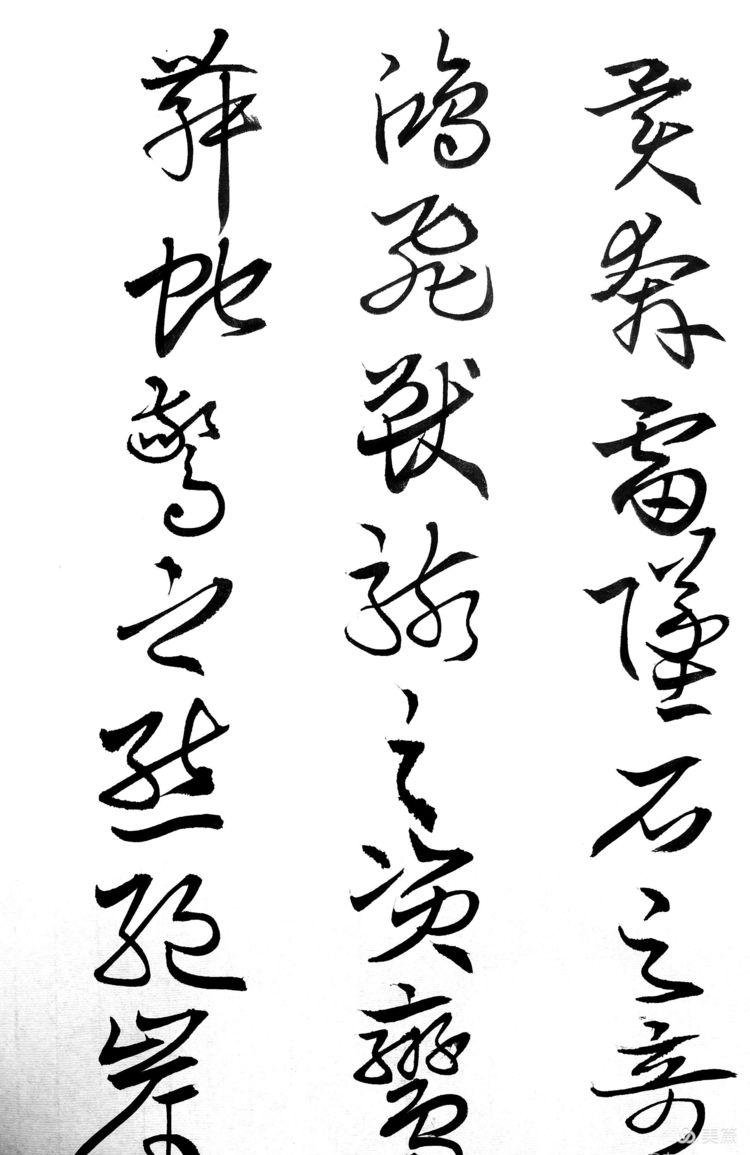 異奔雷墜石之奇
鴻飛獸駭之資鸞
舞蛇驚之態絕岸
美篇